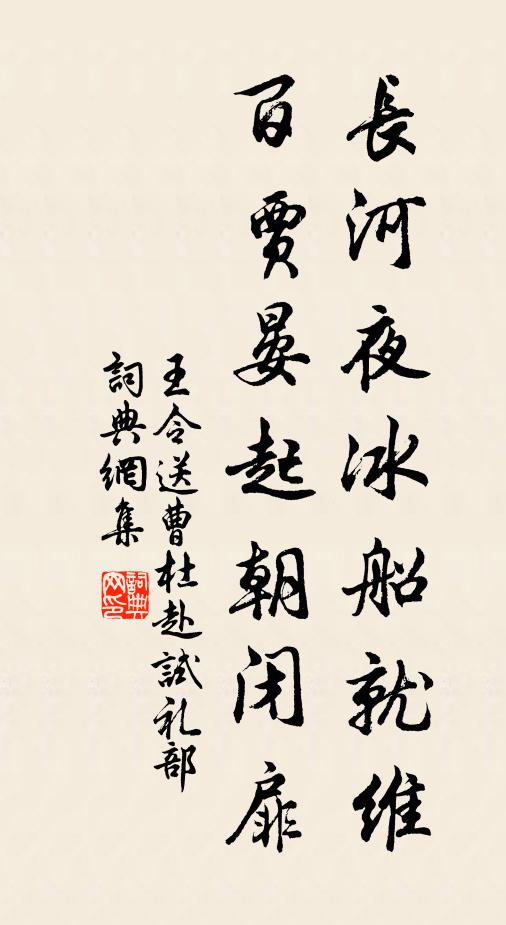 長河夜冰船就維
百賈晏起朝閉扉
王令送曹杜赴試礼部
詞典網集
詞典
网印